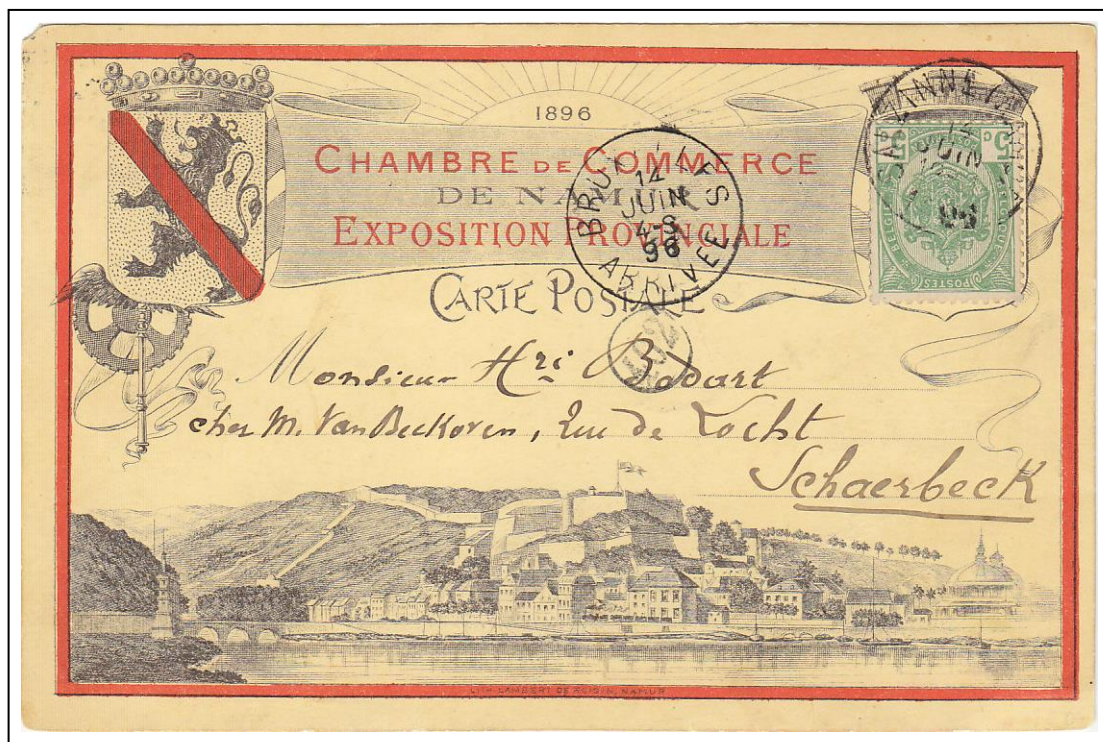 1896
CHAMBRE DE COMMERCE
DE NAMUR
EXPOSITION PROVINCIALE
CARTE POSTALE
BRUXELLES
14
JUIN
4-S
96
ARRIVÉE
STE ANNE
JUIN
96
5 C
5
BELGIQUE
POSTES
482
Monsieur Hri Bodart
chez M. Van Beckoven, Rue de Locht
Schaerbeck
LITH. LAMBERT DE ROISIN, NAMUR